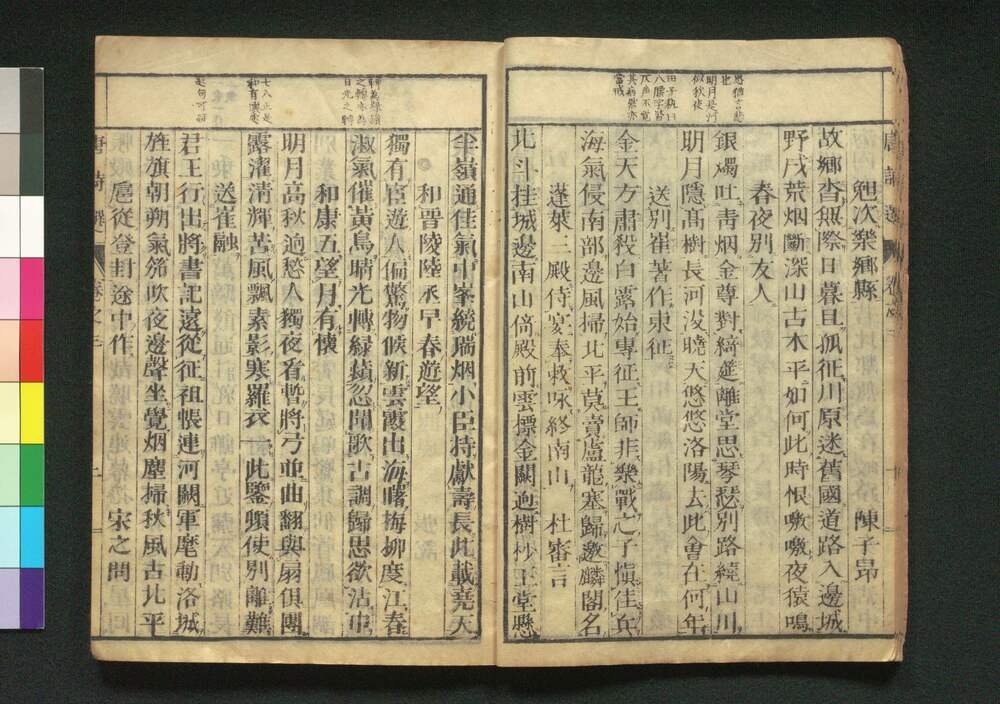 晚次樂鄉縣 陳子昂
故鄉杳無際日暮且孤征川原迷舊國道路入邊城
野戍荒烟斷深山古木平如何此時恨噭噭夜猿鳴
春夜別友人
銀燭吐青烟金尊對綺筵離堂思琴瑟別路繞山川
明月隱高樹長河没曉天悠悠洛陽去此會在何年
送別崔著作東征
金天方肅殺白露始專征王師非樂戰之子慎佳兵
海氣侵南部邊風掃北平莫賣盧龍塞歸邀麟閣名
蓬萊三殿侍宴奉敕咏終南山 杜審言
北斗挂城邊南山倚殿前雲標金闕迥樹杪玉堂懸
半嶺通佳氣中峯繞瑞烟小臣持獻壽長此載堯天
和晋陵陸丞早春遊望
獨有宦遊人偏驚物候新雲霞出海曙梅柳度江春
淑氣催黄鳥晴光轉緑蘋忽聞歌古調歸思欲沾巾
和康五望月有懷
明月高秋迥愁人獨夜看暫將弓並曲翻與扇俱團
露濯清輝苦風飄素影寒羅衣一此鑒頻使別離難
送崔融
君王行出將書記遠從征祖帳連河闕軍麾動洛城
旌旗朝朔氣笳吹夜邊聲坐覺烟塵掃秋風古北平
扈從登封途中作 宋之問
唐詩選 卷之三